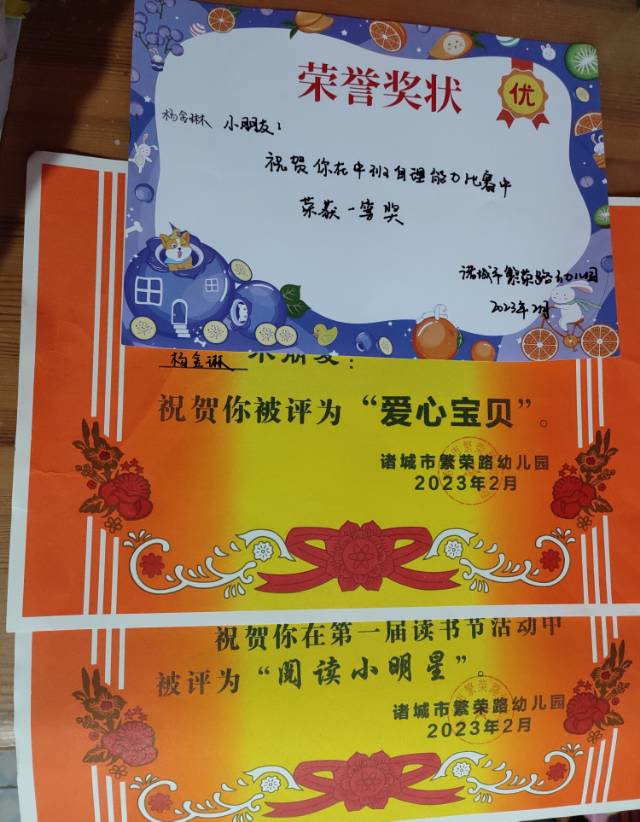 荣誉奖状
优
杨金琳 小朋友：
祝贺你在中班自理能力比赛中
荣获一等奖
诸城市繁荣路幼儿园
2023年2月
杨金琳 小朋友：
祝贺你被评为“爱心宝贝”。
诸城市繁荣路幼儿园
2023年2月
祝贺你在第一届读书节活动中
被评为“阅读小明星”。
诸城市繁荣路幼儿园
2023年2月